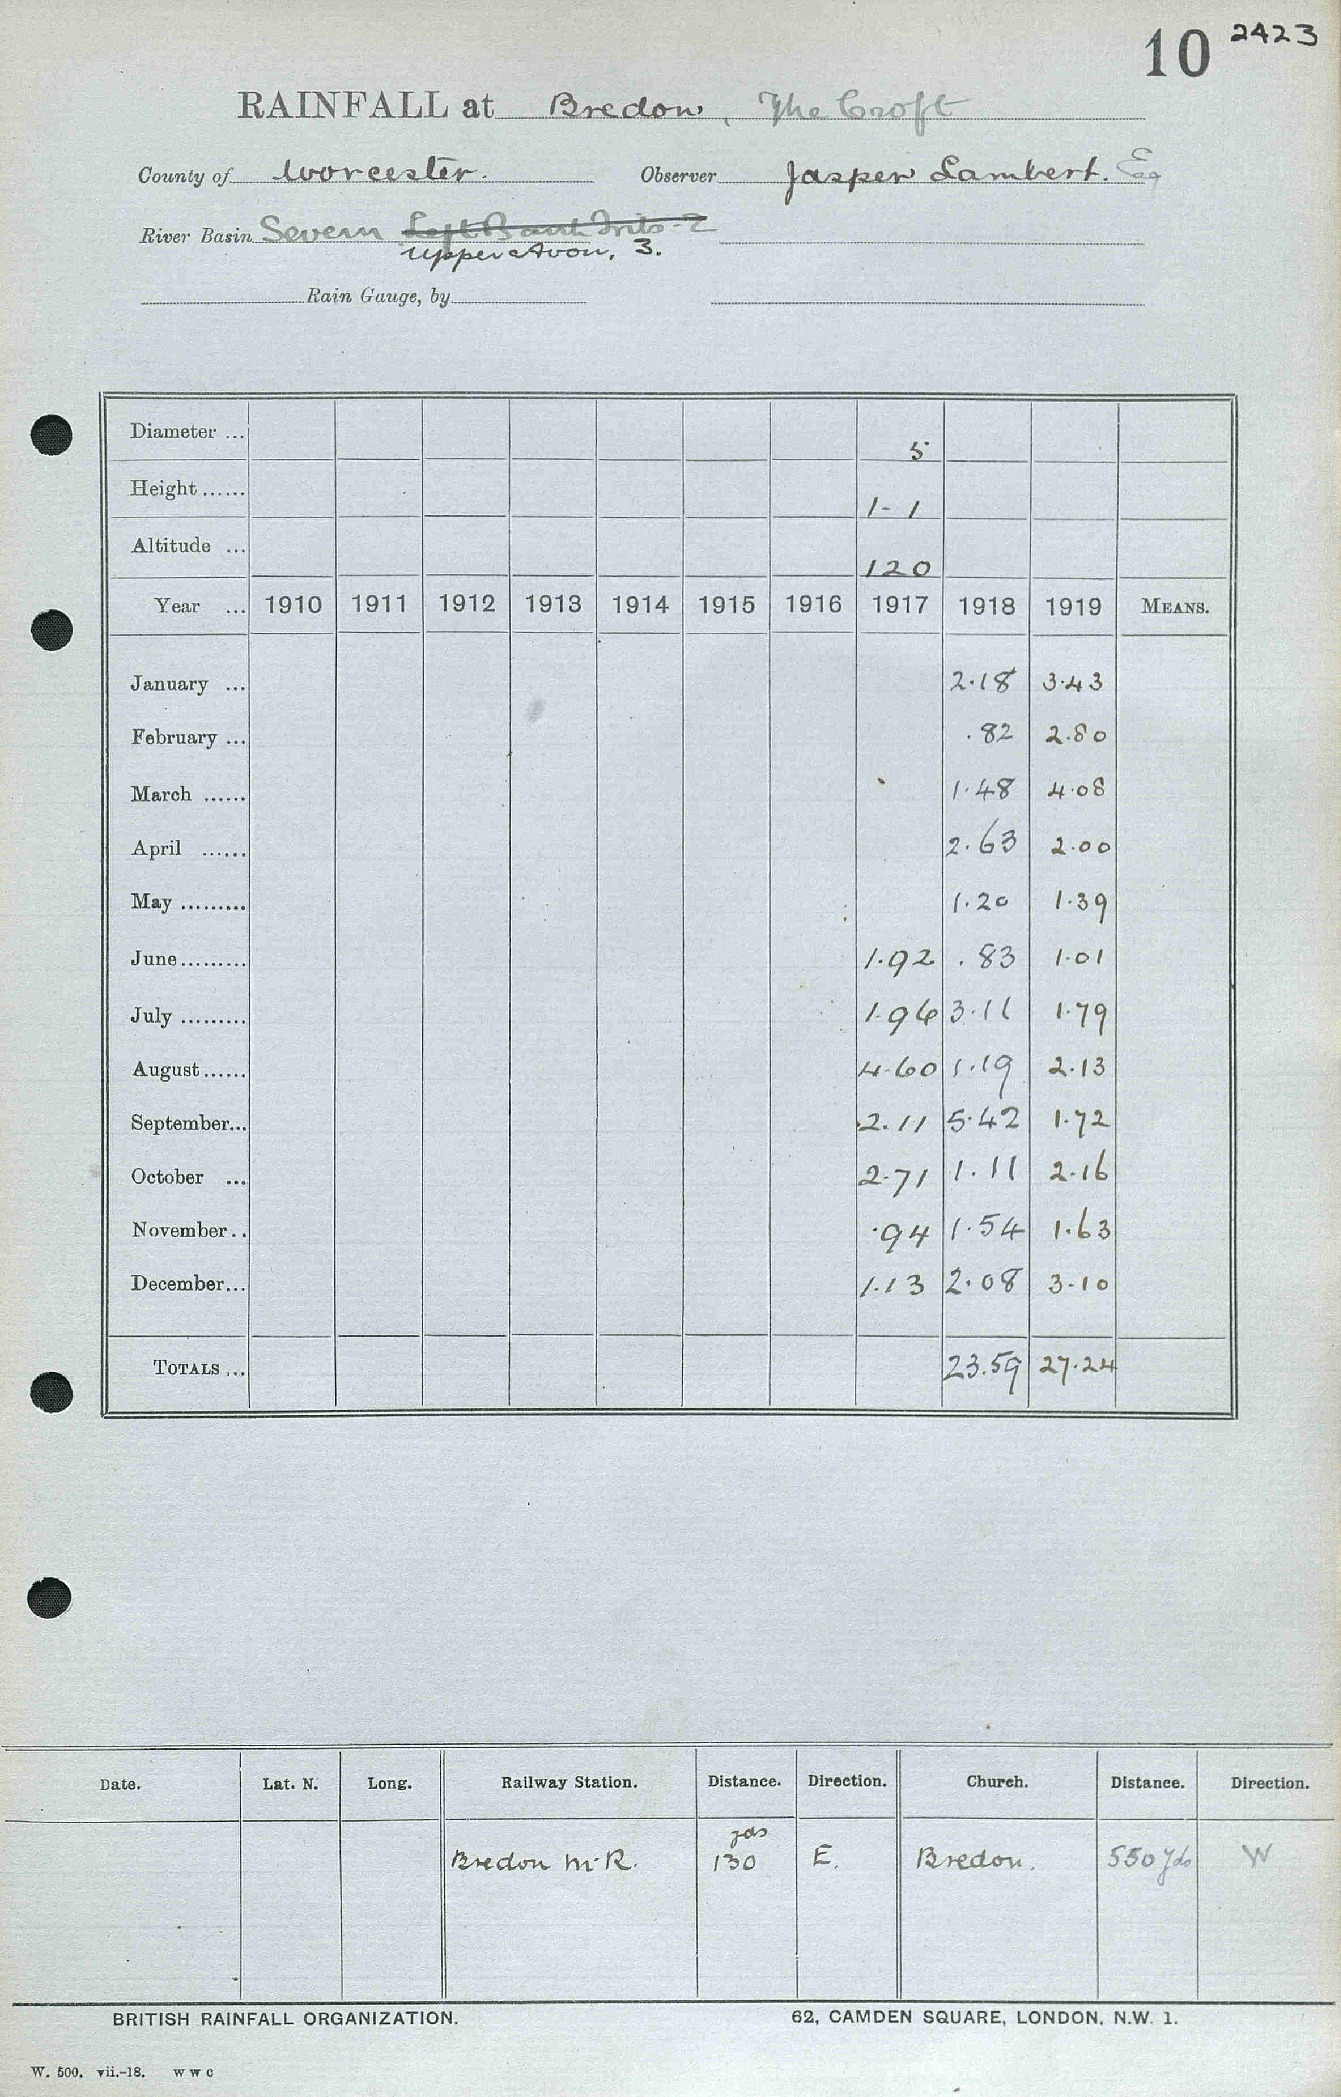 10 2423
RAINFALL at Bredon, The Croft
County of Worcester. Observer Jasper Lambert. Esq
River Basin Severn Left Bank Tribs - 2
Upper Avon, 3.
Rain Gauge, by
Diameter ... 5
Height ...... 1-1
Altitude ... 120
Year ... 1910 1911 1912 1913 1914 1915 1916 1917 1918 1919 MEANS.
January ... 2.18 3.43
February ... .82 2.80
March ...... 1.48 4.08
April ...... 2.63 2.00
May ......... 1.20 1.39
June ......... 1.92 .83 1.01
July ......... 1.96 3.11 1.79
August ...... 4.60 1.19 2.13
September... 2.11 5.42 1.72
October ... 2.71 1.11 2.16
November .. .94 1.54 1.63
December... 1.13 2.08 3.10
TOTALS ... 23.59 27.24
Date. Lat. N. Long. Railway Station. Distance. Direction. Church. Distance. Direction.
yds
Bredon M.R. 130 E. Bredon. 550 yds W
BRITISH RAINFALL ORGANIZATION. 62, CAMDEN SQUARE, LONDON, N.W. 1.
W. 500. vii.-18. W W C